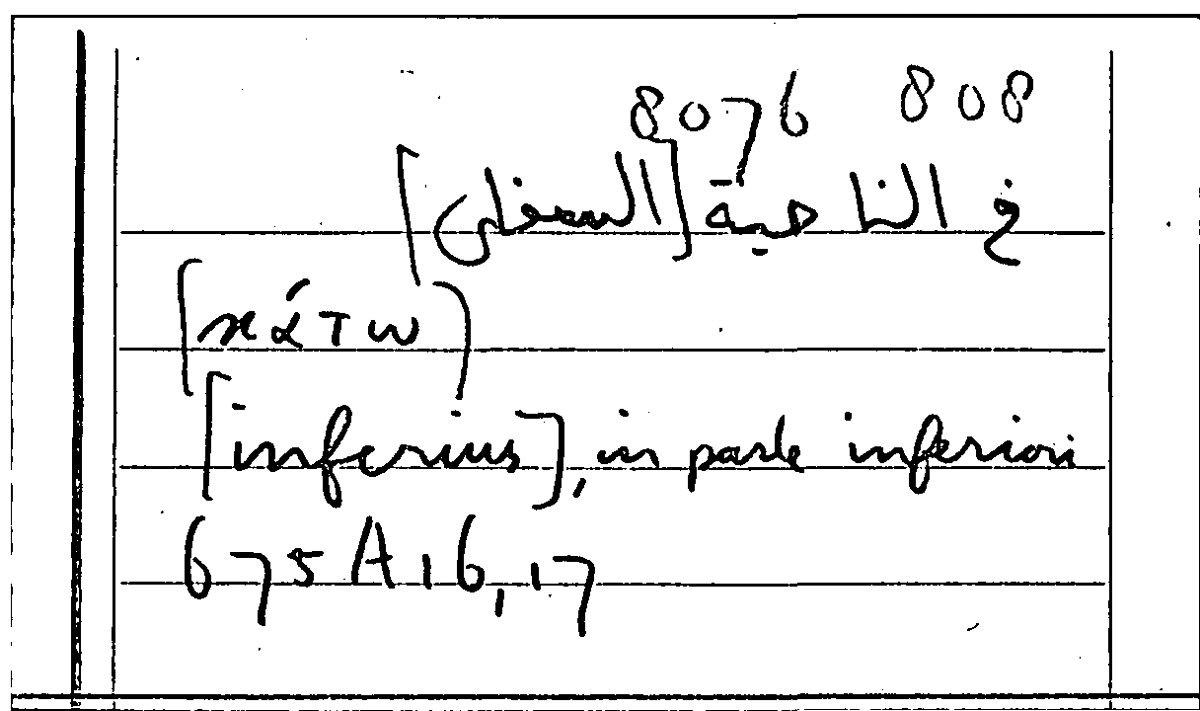 8076 808
في الناحية [السفلى]
[κάτω)
[inferius], in parte inferiori
675A16,17